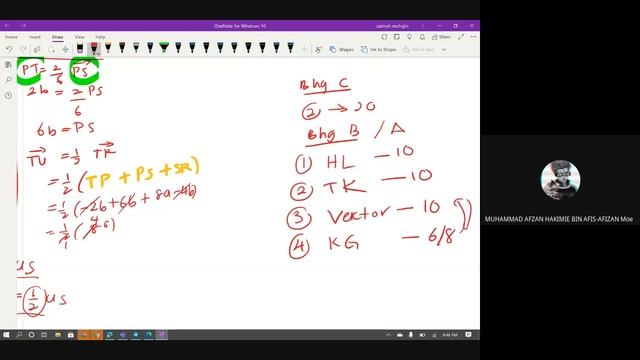 OneNote for Windows 10
zarinah mohajin
Home Insert Draw View Help
Shapes Ink to Shape Ink to Text
PT = 2/6 PS
2b = 2/6 PS
6b = PS
TU = 1/2 TR
= 1/2 (TP + PS + SR)
= 1/2 (-2b + 6b + 8a - 4b)
= 1/2 (8a)
us
= 1/2 us
Bhg C
② → 20
Bhg B / A
① HL — 10
② TK — 10
③ Vektor — 10
④ KG — 6/8
MUHAMMAD AFZAN HAKIMIE BIN AFIS-AFIZAN Moe
9:40 PM